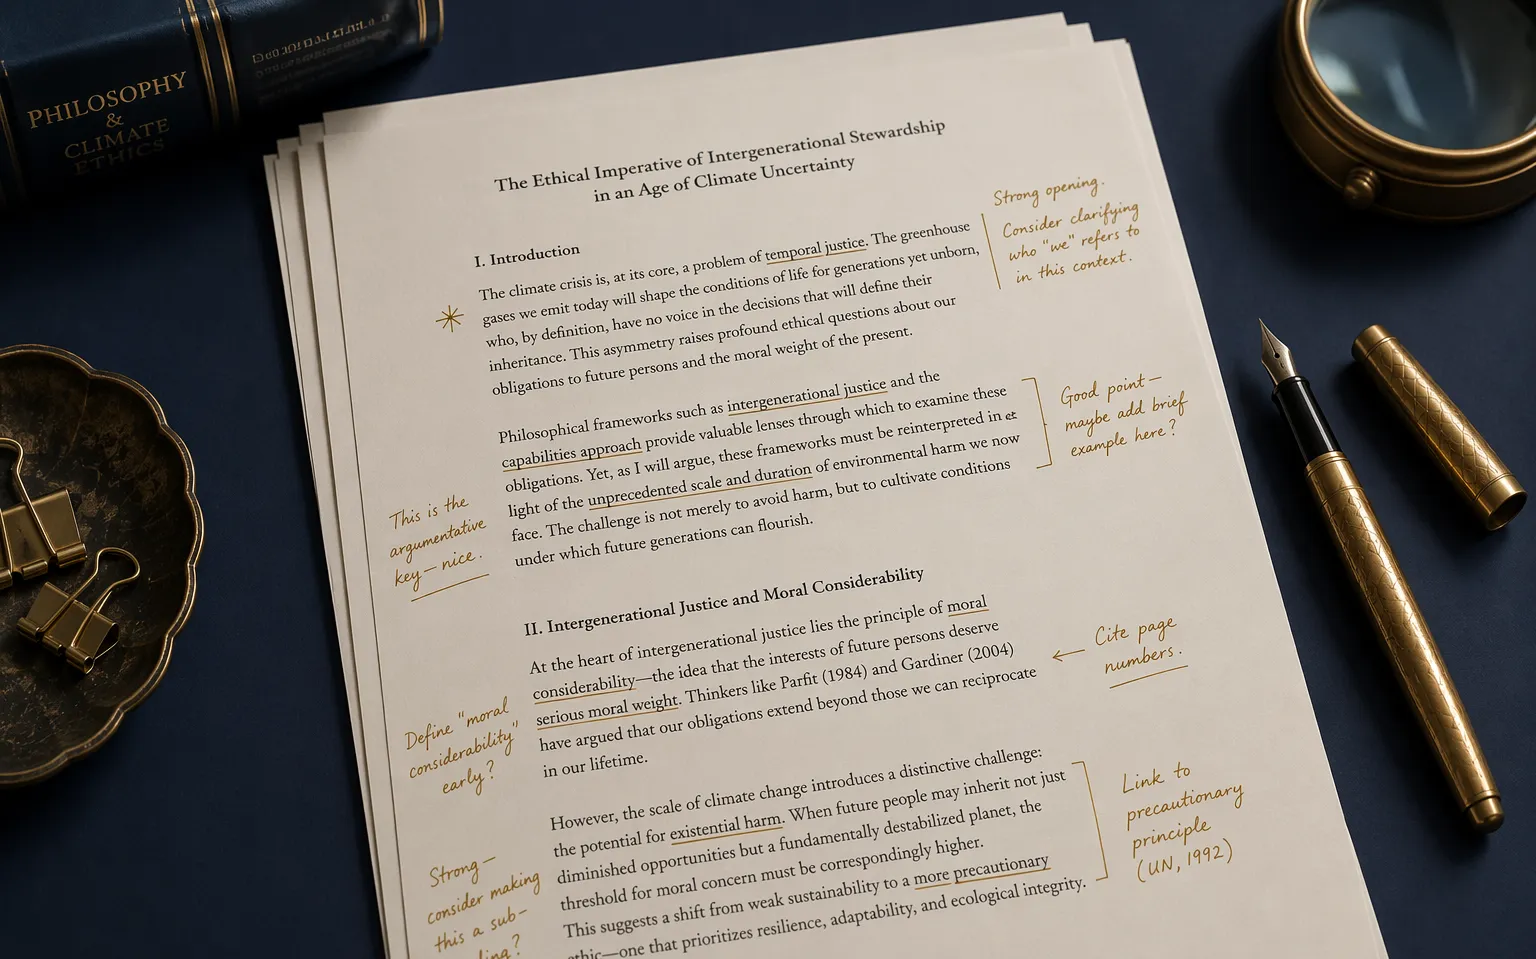 PHILOSOPHY
&
CLIMATE
ETHICS
The Ethical Imperative of Intergenerational Stewardship
in an Age of Climate Uncertainty
I. Introduction
The climate crisis is, at its core, a problem of temporal justice. The greenhouse
gases we emit today will shape the conditions of life for generations yet unborn,
who, by definition, have no voice in the decisions that will define their
inheritance. This asymmetry raises profound ethical questions about our
obligations to future persons and the moral weight of the present.
Strong opening.
Consider clarifying
who "we" refers to
in this context.
Philosophical frameworks such as intergenerational justice and the
capabilities approach provide valuable lenses through which to examine these
obligations. Yet, as I will argue, these frameworks must be reinterpreted in
light of the unprecedented scale and duration of environmental harm we now
face. The challenge is not merely to avoid harm, but to cultivate conditions
under which future generations can flourish.
Good point—
maybe add brief
example here?
This is the
argumentative
key—nice.
II. Intergenerational Justice and Moral Considerability
At the heart of intergenerational justice lies the principle of moral
considerability—the idea that the interests of future persons deserve
serious moral weight. Thinkers like Parfit (1984) and Gardiner (2004)
have argued that our obligations extend beyond those we can reciprocate
in our lifetime.
Cite page
numbers.
Define "moral
considerability"
early?
However, the scale of climate change introduces a distinctive challenge:
the potential for existential harm. When future people may inherit not just
diminished opportunities but a fundamentally destabilized planet, the
threshold for moral concern must be correspondingly higher.
This suggests a shift from weak sustainability to a more precautionary
ethic—one that prioritizes resilience, adaptability, and ecological integrity.
Link to
precautionary
principle
(UN, 1992)
Strong—
consider making
this a sub-